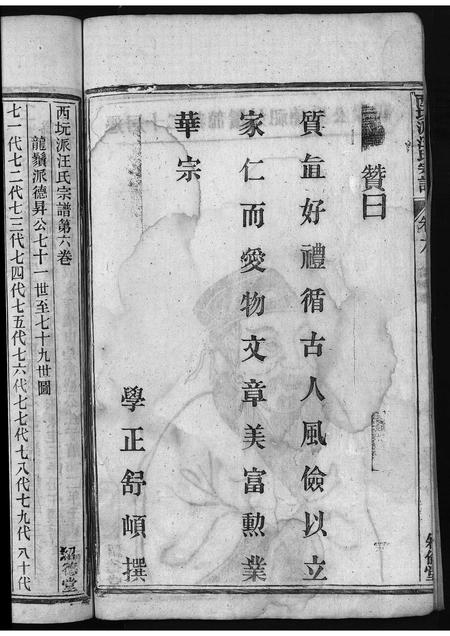 西坑派汪氏宗譜
卷六
贊曰
質直好禮循古人風儉以立
家仁而愛物文章美富勳業
華宗
學正舒頔撰
西坑派汪氏宗譜第六卷
龍鬚派德昇公七十一世至七十九世圖
七一代七二代七三代七四代七五代七六代七七代七八代七九代八十代
紹德堂